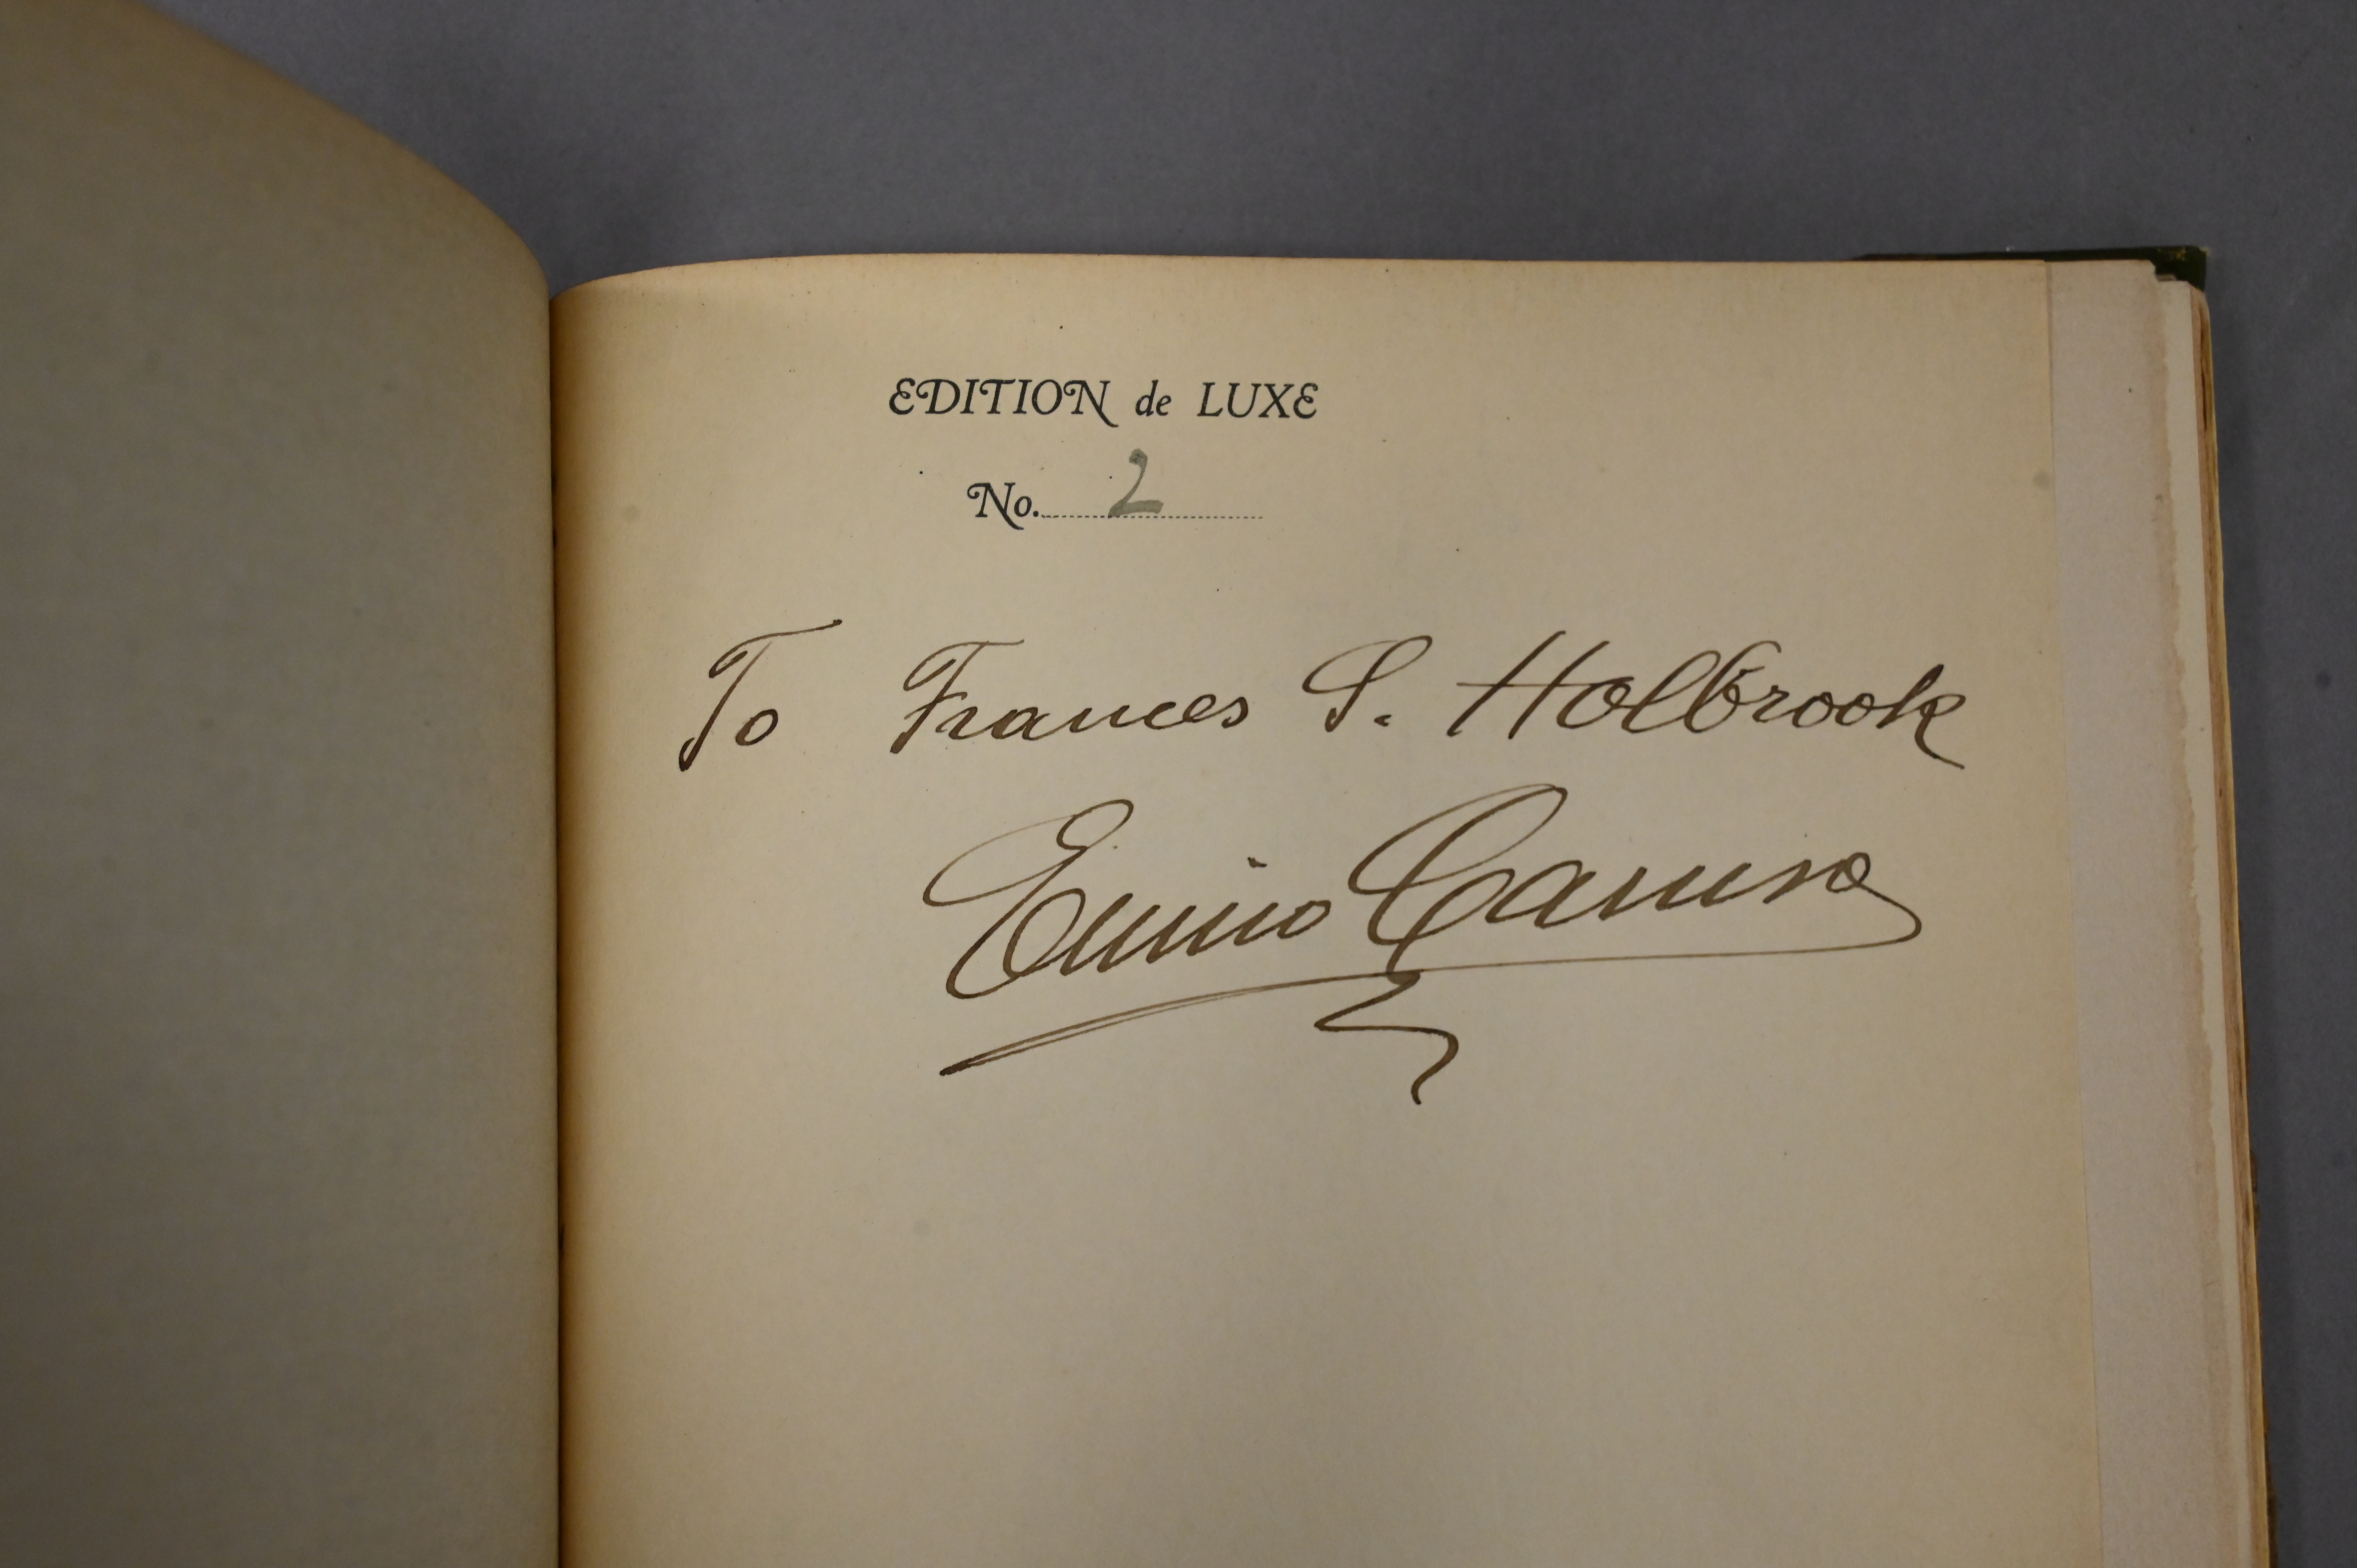 EDITION de LUXE
No. 2
To Frances S. Holbrook
Enrico Caruso